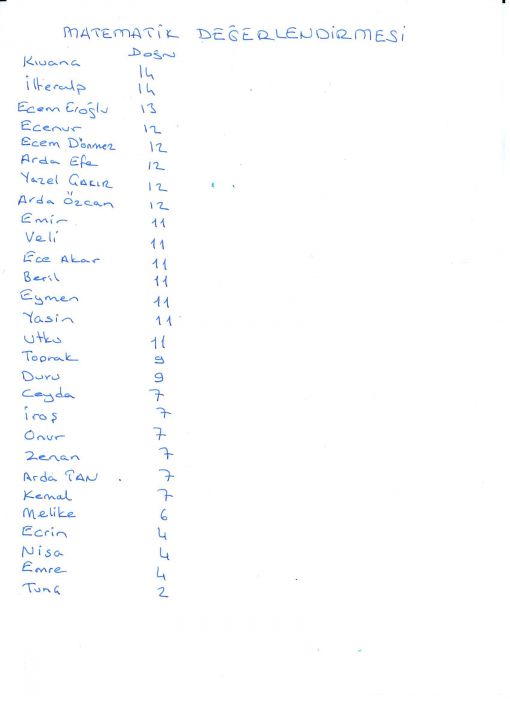 MATEMATİK DEĞERLENDİRMESİ
Doğru
Kıvanç 14
İlteralp 14
Ecem Eroğlu 13
Ecenur 12
Ecem Dönmez 12
Arda Efe 12
Yazel ÇAKIR 12
Arda Özcan 12
Emir 11
Veli 11
Ece Akar 11
Beril 11
Eymen 11
Yasin 11
Utku 11
Toprak 9
Duru 9
Ceyda 7
7
Onur 7
Zenan 7
Arda TAN 7
Kemal 7
Melike 6
Ecrin 4
Nisa 4
Emre 4
Tunç 2